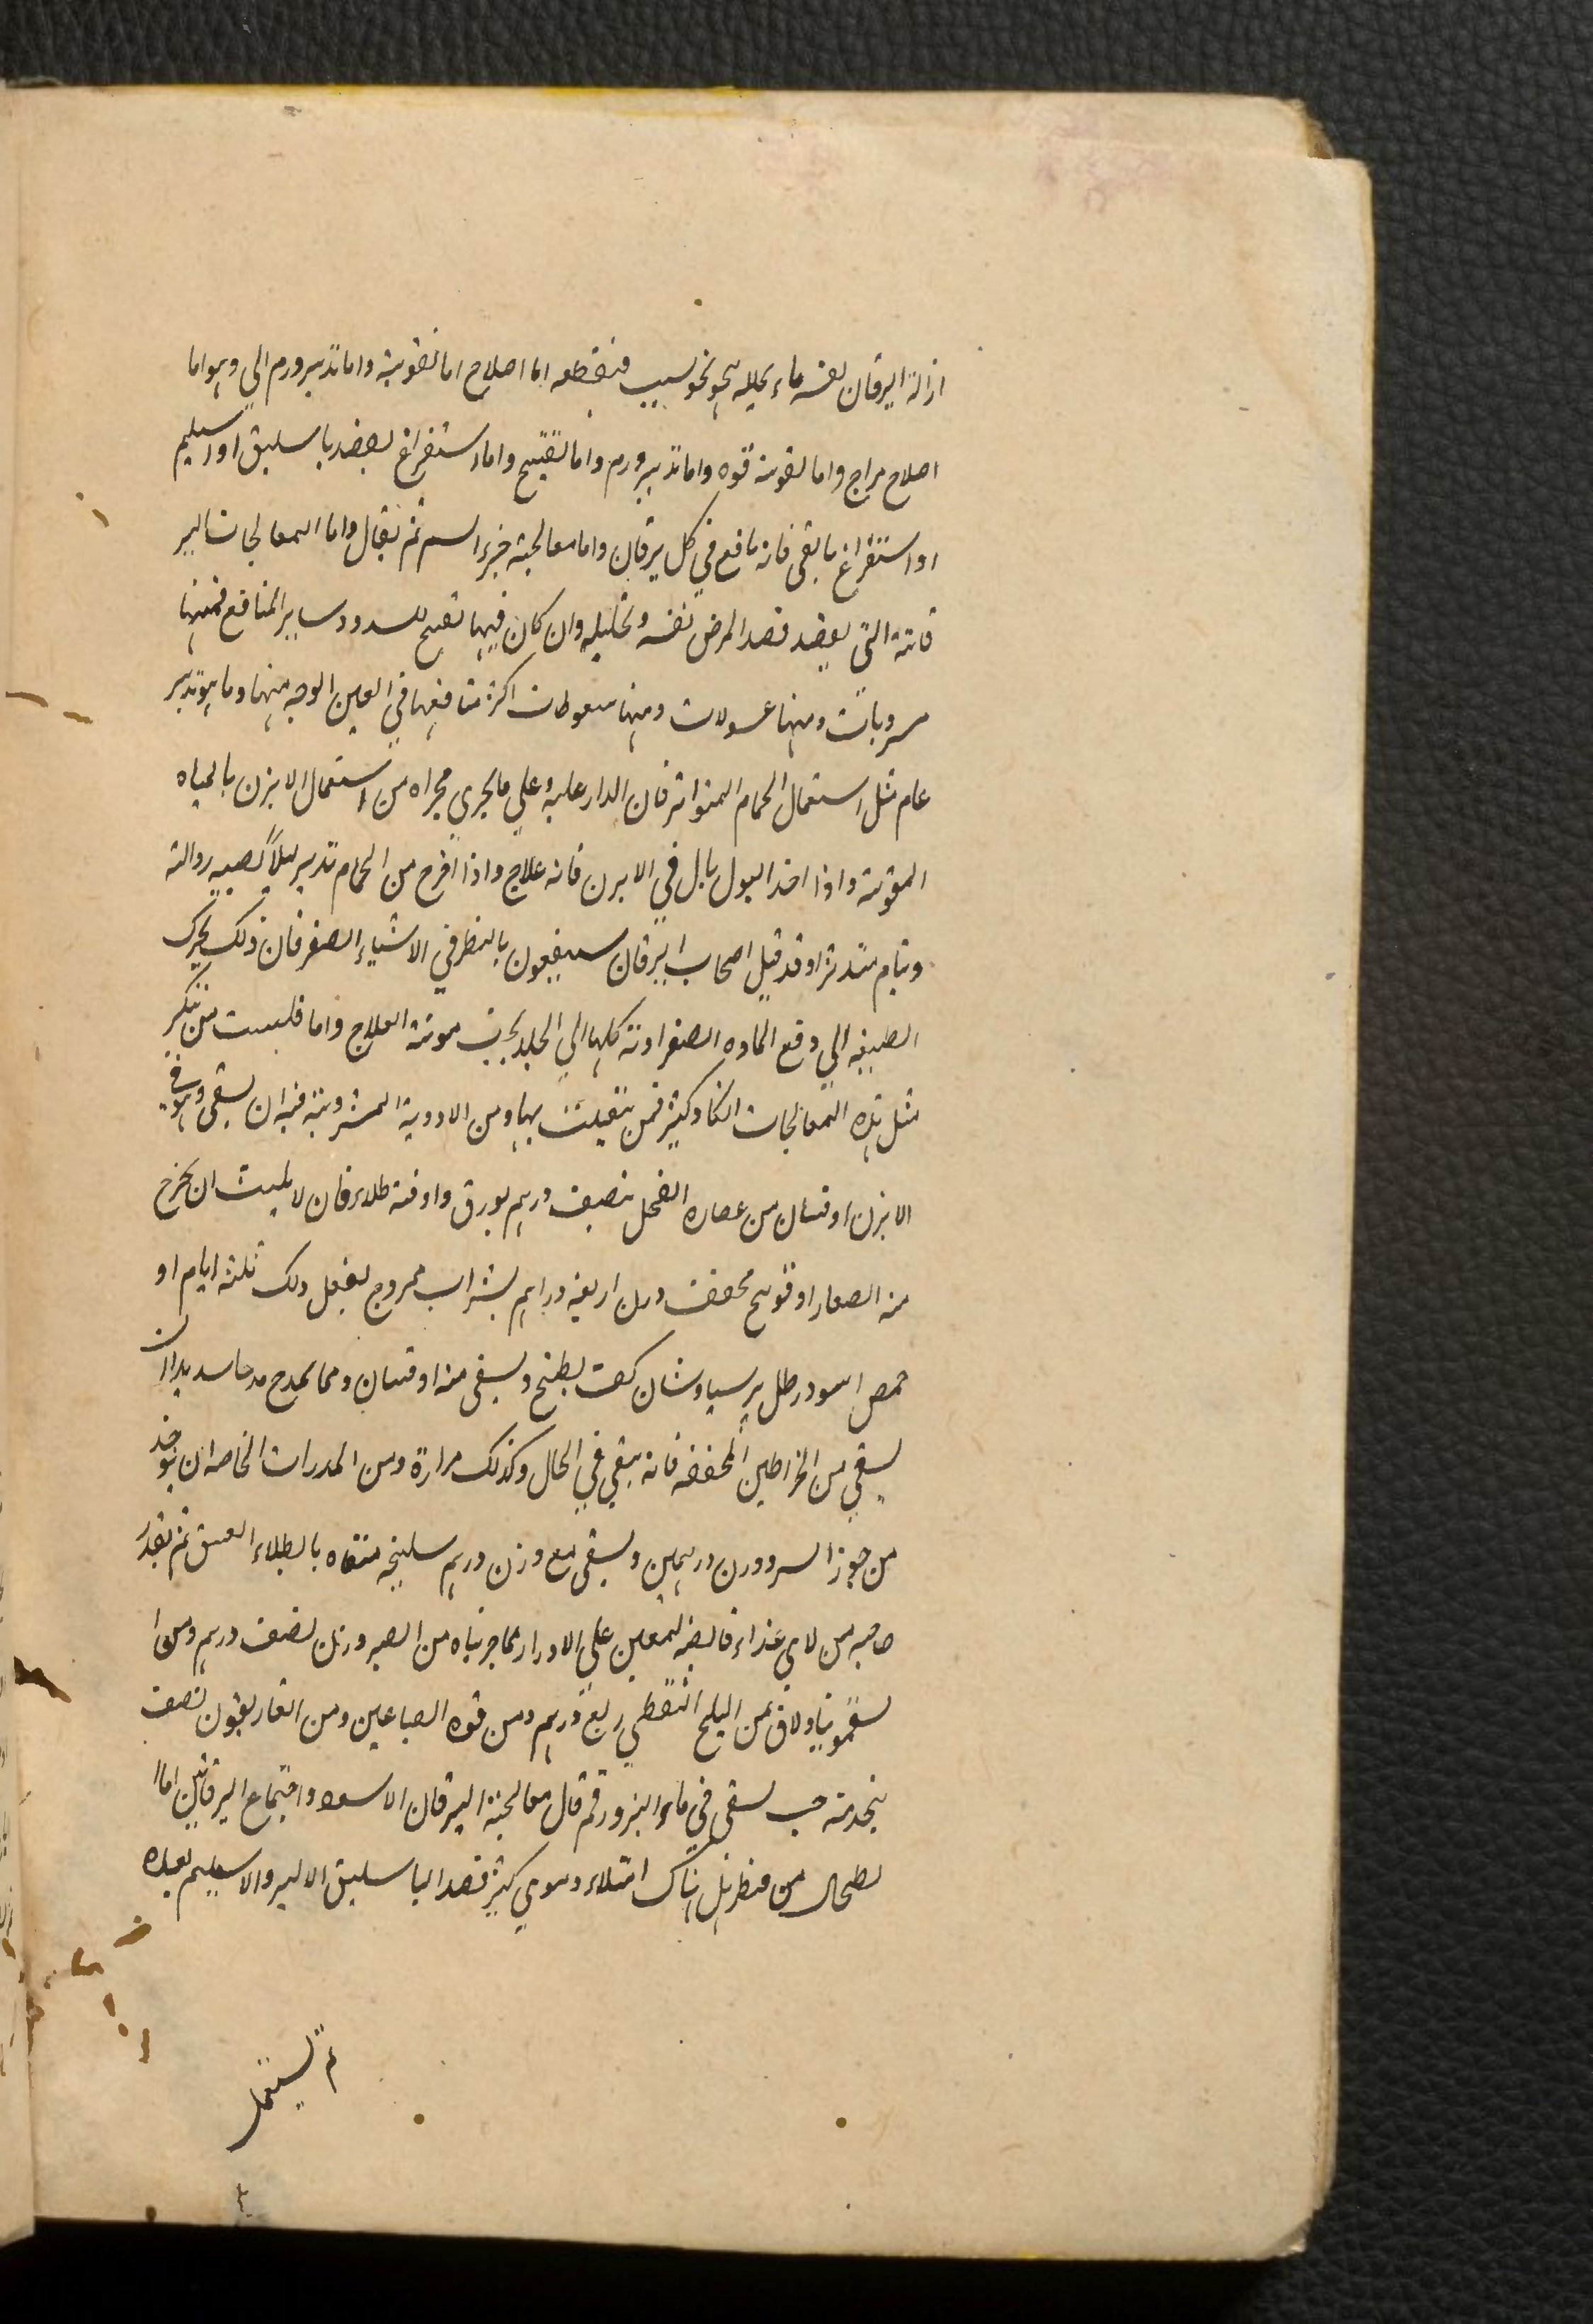 ازالة اليرقان نفسه ماء يحلله نحو نحو سبب فنقطعه اما اصلاح اما تقوية واما تدبير ورم الي وهو اما
اصلاح مزاج واما تقوية قوه واما تدبير ورم واما تفتيح واما استفراغ بفصد باسليق او اسيلم
او استفراغ ما بقى فانه نافع في كل يرقان واما معالجة ضرر السم ثم نقال واما المعالجات الير
قانية التى يقصد قصد المرض نفسه وتحليله وان كان فيها تفتيح للسدود وساير المنافع فمنها
مشروبات ومنها غسولات ومنها سعوطات اكثر منافعها في العين الوجه منها وما هو تدبير
عام مثل استعمال الحمام المتواتر فان المدار عليه وعلي ما يجري مجراه من استعمال الابزن بالمياه
المقوية واذا اخذ البول بابل في الابزن فانه علاج واذا اخرج من الحمام تدبر ليلا يصيبه
وينام متدثرا وقد قيل اصحاب اليرقان ينتفعون بالنظر في الاشياء الصفر فان ذلك يحرك
الطبيعه الي دفع الماده الصفراوية كلها الي الجلد مونة العلاج واما فلست ممن ينكر
مثل هذه المعالجات انكار كثير فمن بها ومن الادوية المشروبة فيه ان يسقى وهو في
الابزن اوقيتان من عصاره الفجل بنصف درهم بورق واوقية طلاء فان لا يلبث ان يخرج
منه الصفار او فوتنج مجفف وزن اربعه دراهم بشراب ممزوج يفعل ذلك ثلثه ايام او
حمص اسود رطل برسياوشان كف يطبخ ويسقى منه اوقيتان ومما يمدح مدحا شديدا ان
يسقي من الخراطين المجففه فانه ينقي في الحال وكذلك مرارة ومن المدرات الخاصه ان يوخذ
من جوز السرو وزن درهمين ويسقى مع وزن درهم سليخه منقاه بالطلاء العتيق ثم يقدر
صاحبه من لاي غذاء فانه ليعين علي الادرار مما جربناه من الصبر وزن نصف درهم ومن ا
لسقمونيا دانق من الملح النفطي ربع درهم ومن فوه الصباغين ومن الغاريقون نصف
يتخذ منه حب يسقى في ماء البزور قم قال معالجة اليرقان الاسود واجتماع اليرقانين اما ا
لطحال من فنظر هل هناك امتلاء دموي كثير فصد الباسليق الايسر والاسيلم بعيده
ثم يستعمل